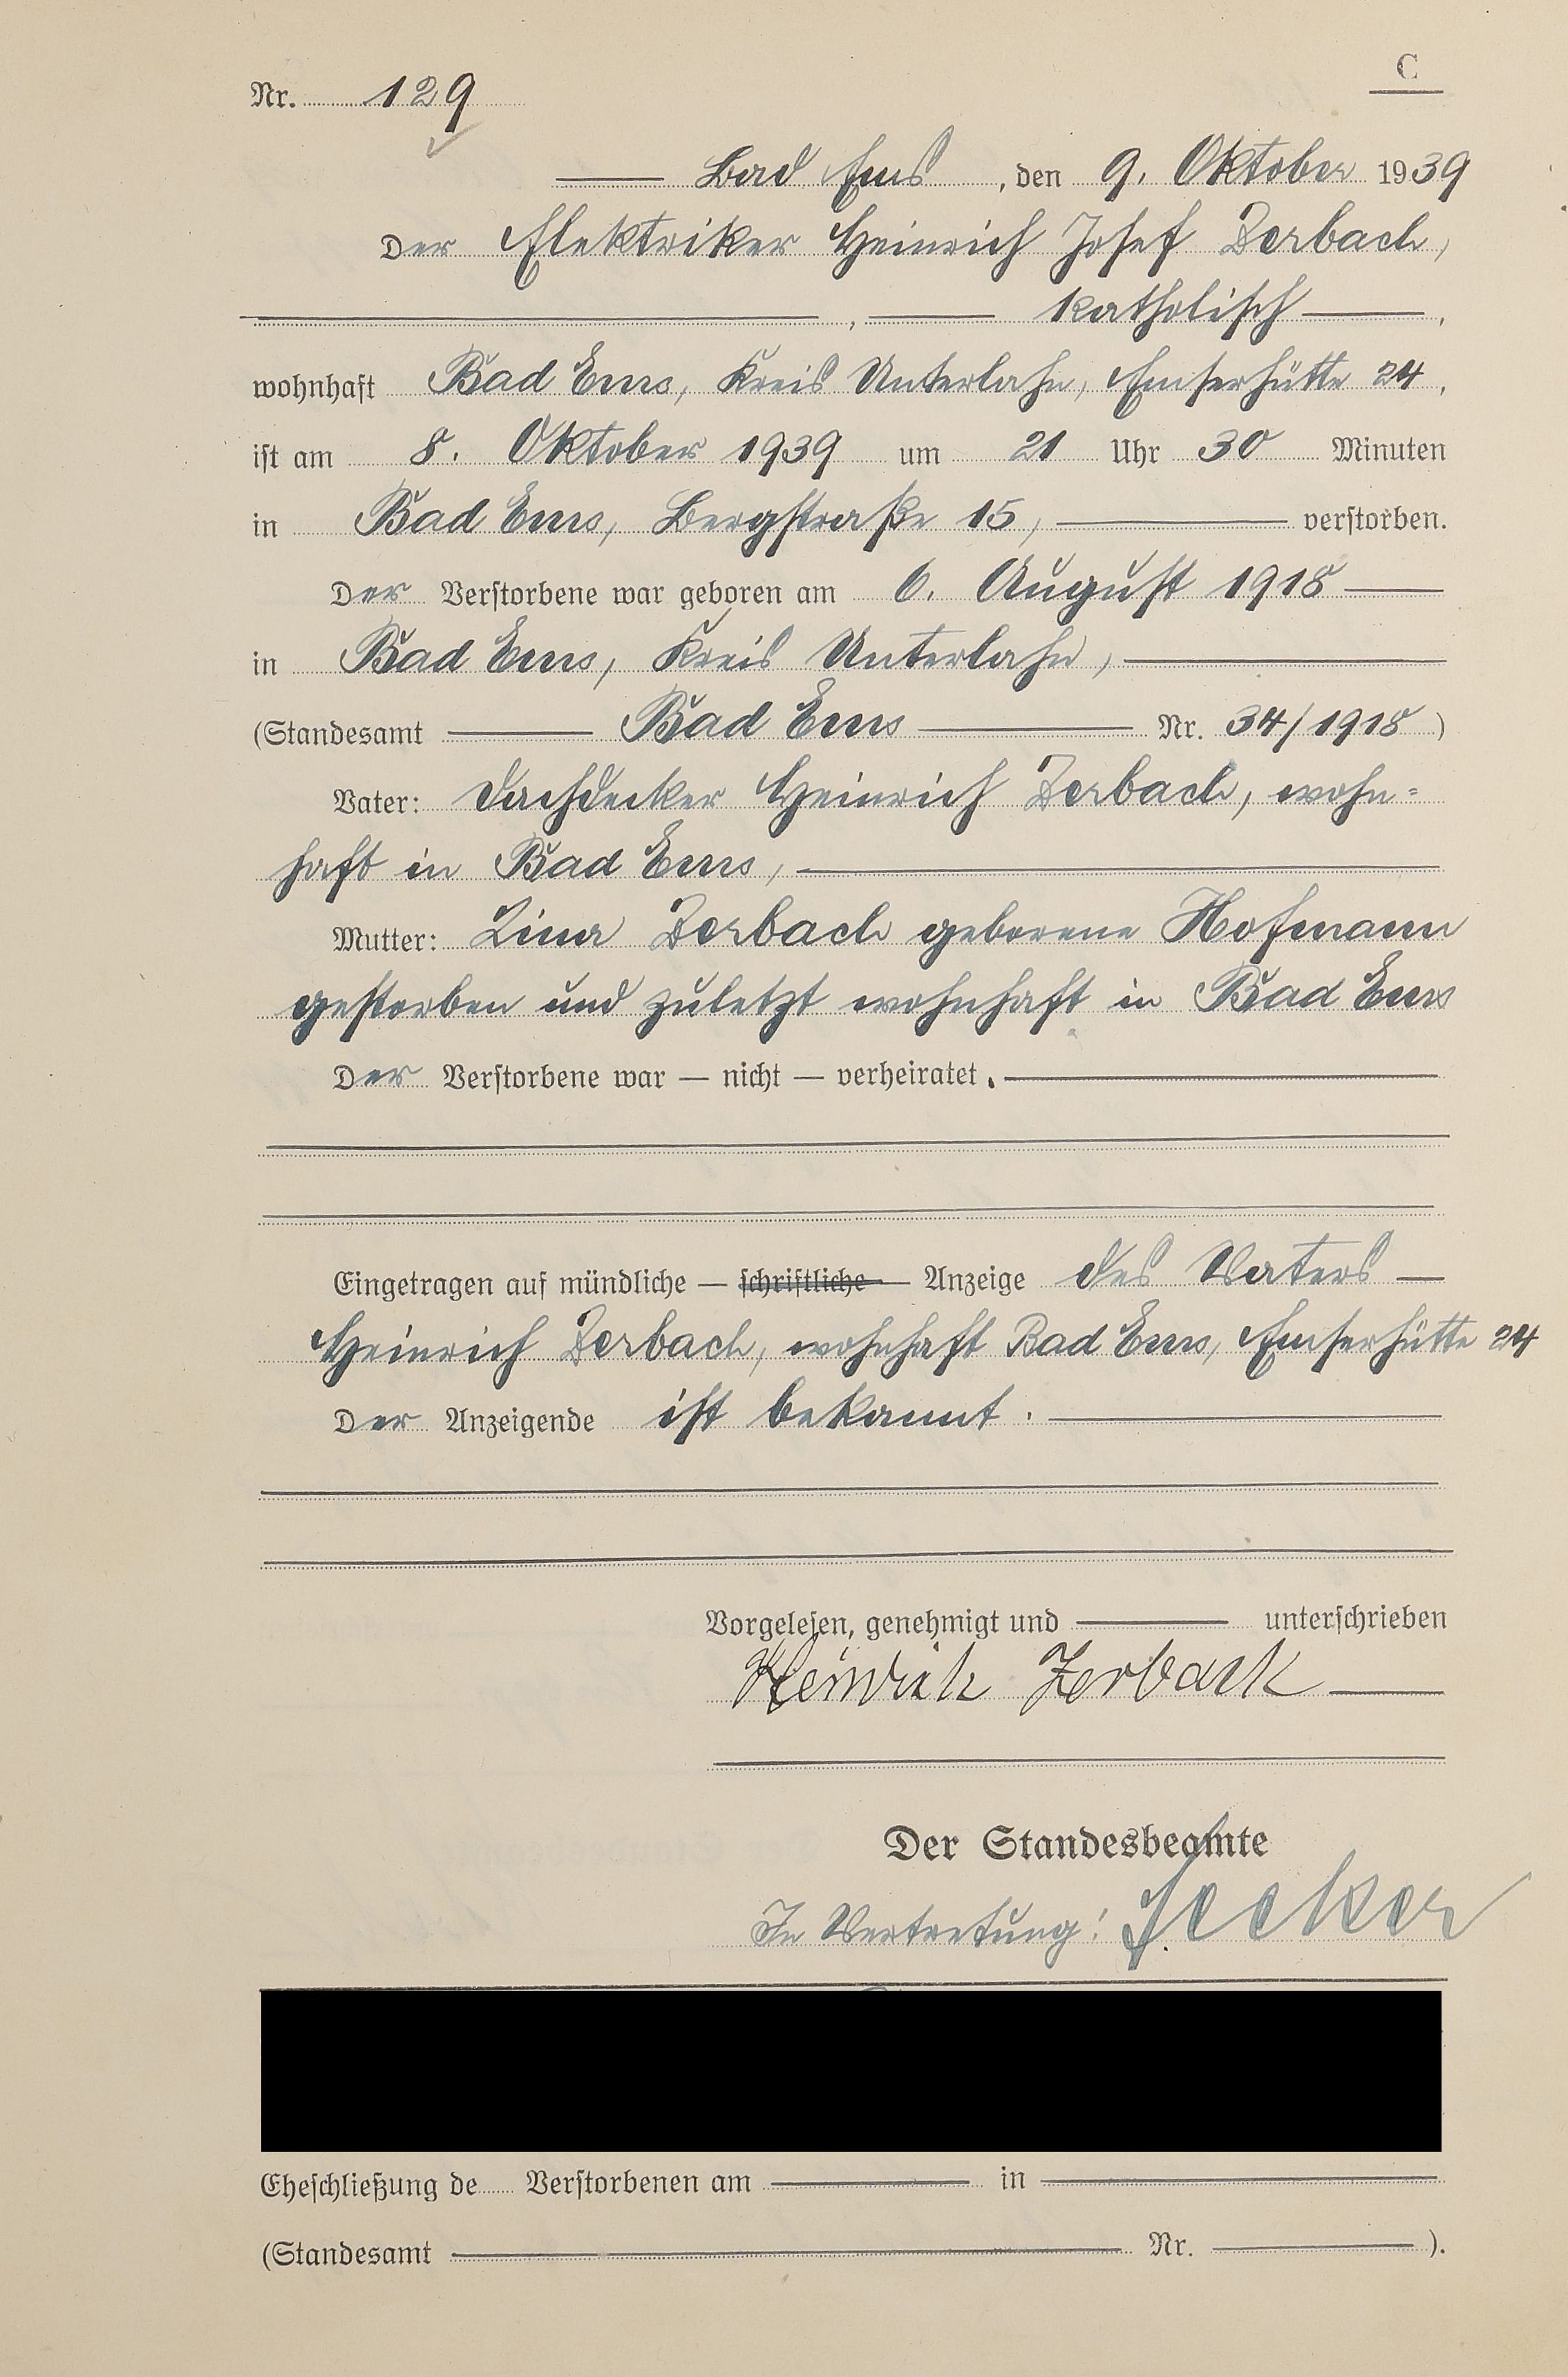 C
Nr. 129
Bad Ems, den 9. Oktober 1939
Der Elektriker Heinrich Josef Zerbach,
, katholisch,
wohnhaft Bad Ems, Kreis Unterlahn, Emserhütte 24,
ist am 8. Oktober 1939 um 21 Uhr 30 Minuten
in Bad Ems, Bergstraße 15, verstorben.
Der Verstorbene war geboren am 6. August 1918
in Bad Ems, Kreis Unterlahn,
(Standesamt Bad Ems Nr. 34/1918)
Vater: Dachdecker Heinrich Zerbach, wohn=
haft in Bad Ems,
Mutter: Lina Zerbach geborene Hofmann
gestorben und zuletzt wohnhaft in Bad Ems
Der Verstorbene war — nicht — verheiratet.
Eingetragen auf mündliche — schriftliche — Anzeige des Vaters
Heinrich Zerbach, wohnhaft Bad Ems, Emserhütte 24
Der Anzeigende ist bekannt.
Vorgelesen, genehmigt und unterschrieben
Heinrich Zerbach
Der Standesbeamte
In Vertretung:
Eheschließung de Verstorbenen am in
(Standesamt Nr. ).